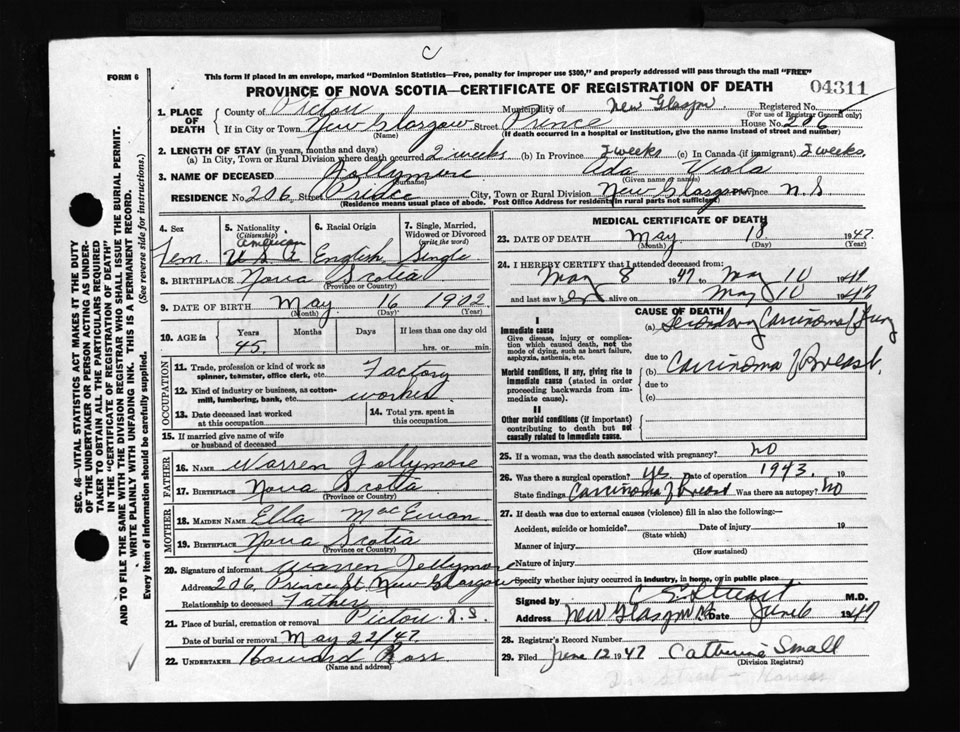 C
FORM 6
This form if placed in an envelope, marked "Dominion Statistics—Free, penalty for improper use $300," and properly addressed will pass through the mail "FREE"
PROVINCE OF NOVA SCOTIA—CERTIFICATE OF REGISTRATION OF DEATH
04311
1. PLACE OF DEATH
County of Pictou Municipality of New Glasgow Registered No.
(For use of Registrar General only)
If in City or Town New Glasgow Street Prince House No. 206
(Name) (If death occurred in a hospital or institution, give the name instead of street and number)
2. LENGTH OF STAY (in years, months and days)
(a) In City, Town or Rural Division where death occurred 2 weeks (b) In Province 2 weeks (c) In Canada (if immigrant) 2 weeks.
3. NAME OF DECEASED Jollymore Ada Viola
Surname Given name or names
RESIDENCE No. 206, Street Prince City, Town or Rural Division New Glasgow Province N.S.
(Residence means usual place of abode. Post Office Address for residents in rural parts not sufficient)
4. Sex
Fem.
5. Nationality
(Citizenship)
American
U.S.A.
6. Racial Origin
English
7. Single, Married, Widowed or Divorced
(write the word)
Single
8. BIRTHPLACE Nova Scotia
(Province or Country)
9. DATE OF BIRTH May 16 1902
(Month) (Day) (Year)
10. AGE in Years Months Days If less than one day old
45. hrs. or min.
OCCUPATION
11. Trade, profession or kind of work as spinner, teamster, office clerk, etc. Factory
12. Kind of industry or business, as cotton-mill, lumbering, bank, etc. worker
13. Date deceased last worked at this occupation
14. Total yrs. spent in this occupation
15. If married give name of wife or husband of deceased
FATHER
16. NAME Warren Jollymore
17. BIRTHPLACE Nova Scotia
(Province or Country)
MOTHER
18. MAIDEN NAME Ella MacEwan
19. BIRTHPLACE Nova Scotia
(Province or Country)
20. Signature of informant Warren Jollymore
Address 206, Prince St. New Glasgow
Relationship to deceased Father
21. Place of burial, cremation or removal Pictou N.S.
Date of burial or removal May 22/47.
22. UNDERTAKER Howard Ross
(Name and address)
MEDICAL CERTIFICATE OF DEATH
23. DATE OF DEATH May 18 1947
(Month) (Day) (Year)
24. I HEREBY CERTIFY that I attended deceased from:
May 8 1947 to May 10 1947
and last saw her alive on May 10 1947
CAUSE OF DEATH
I
Immediate cause
Give disease, injury or complication which caused death, not the mode of dying, such as heart failure, asphyxia, asthenia, etc.
Morbid conditions, if any, giving rise to immediate cause (stated in order proceeding backwards from immediate cause)
II
Other morbid conditions (if important) contributing to death but not causally related to immediate cause.
(a) Secondary Carcinoma of Lung
due to
(b) Carcinoma of Breast.
due to
(c)
25. If a woman, was the death associated with pregnancy? No
26. Was there a surgical operation? Yes Date of operation 1943. 19
State findings Carcinoma of Breast Was there an autopsy? No
27. If death was due to external causes (violence) fill in also the following—
Accident, suicide or homicide? Date of injury 19
(State which)
Manner of injury
(How sustained)
Nature of injury
Specify whether injury occurred in industry, in home, or in public place
Signed by M.D.
Address New Glasgow N.S. Date June 6 1947
28. Registrar's Record Number
29. Filed June 12 1947 Catherine Small
(Division Registrar)
SEC. 46—VITAL STATISTICS ACT MAKES IT THE DUTY
OF THE UNDERTAKER OR PERSON ACTING AS UNDER-
TAKER TO OBTAIN ALL THE PARTICULARS REQUIRED
IN THE "CERTIFICATE OF REGISTRATION OF DEATH"
AND TO FILE THE SAME WITH THE DIVISION REGISTRAR WHO SHALL ISSUE THE BURIAL PERMIT.
WRITE PLAINLY WITH UNFADING INK. THIS IS A PERMANENT RECORD.
Every item of information should be carefully supplied. (See reverse side for instructions.)